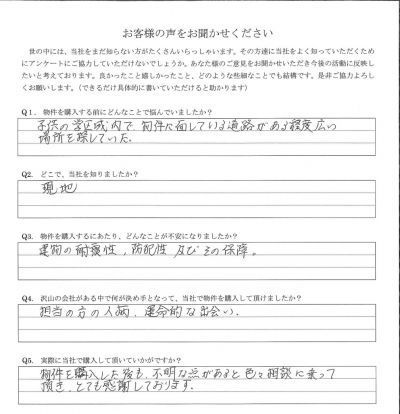 お客様の声をお聞かせください
世の中には、当社をまだ知らない方がたくさんいらっしゃいます。その方達に当社をよく知っていただくため
にアンケートにご協力していただけないでしょうか。あなた様のご意見をお聞かせいただき今後の活動に反映し
たいと考えております。良かったこと嬉しかったこと、どのような些細なことでも結構です。是非ご協力よろし
くお願いします。(できるだけ具体的に書いていただけると助かります)
Q1. 物件を購入する前にどんなことで悩んでいましたか?
子供の学区域内で、物件に面している道路がある程度広い
場所を探していた。
Q2. どこで、当社を知りましたか?
現地
Q3. 物件を購入するにあたり、どんなことが不安になりましたか?
建物の耐震性、防犯性 及び その保障。
Q4. 沢山の会社がある中で何が決め手となって、当社で物件を購入して頂けましたか?
担当の方の人柄、運命的な出会い。
Q5. 実際に当社で購入して頂いていかがですか?
物件を購入した後も、不明な点があると色々相談に乗って
頂き、とても感謝しております。